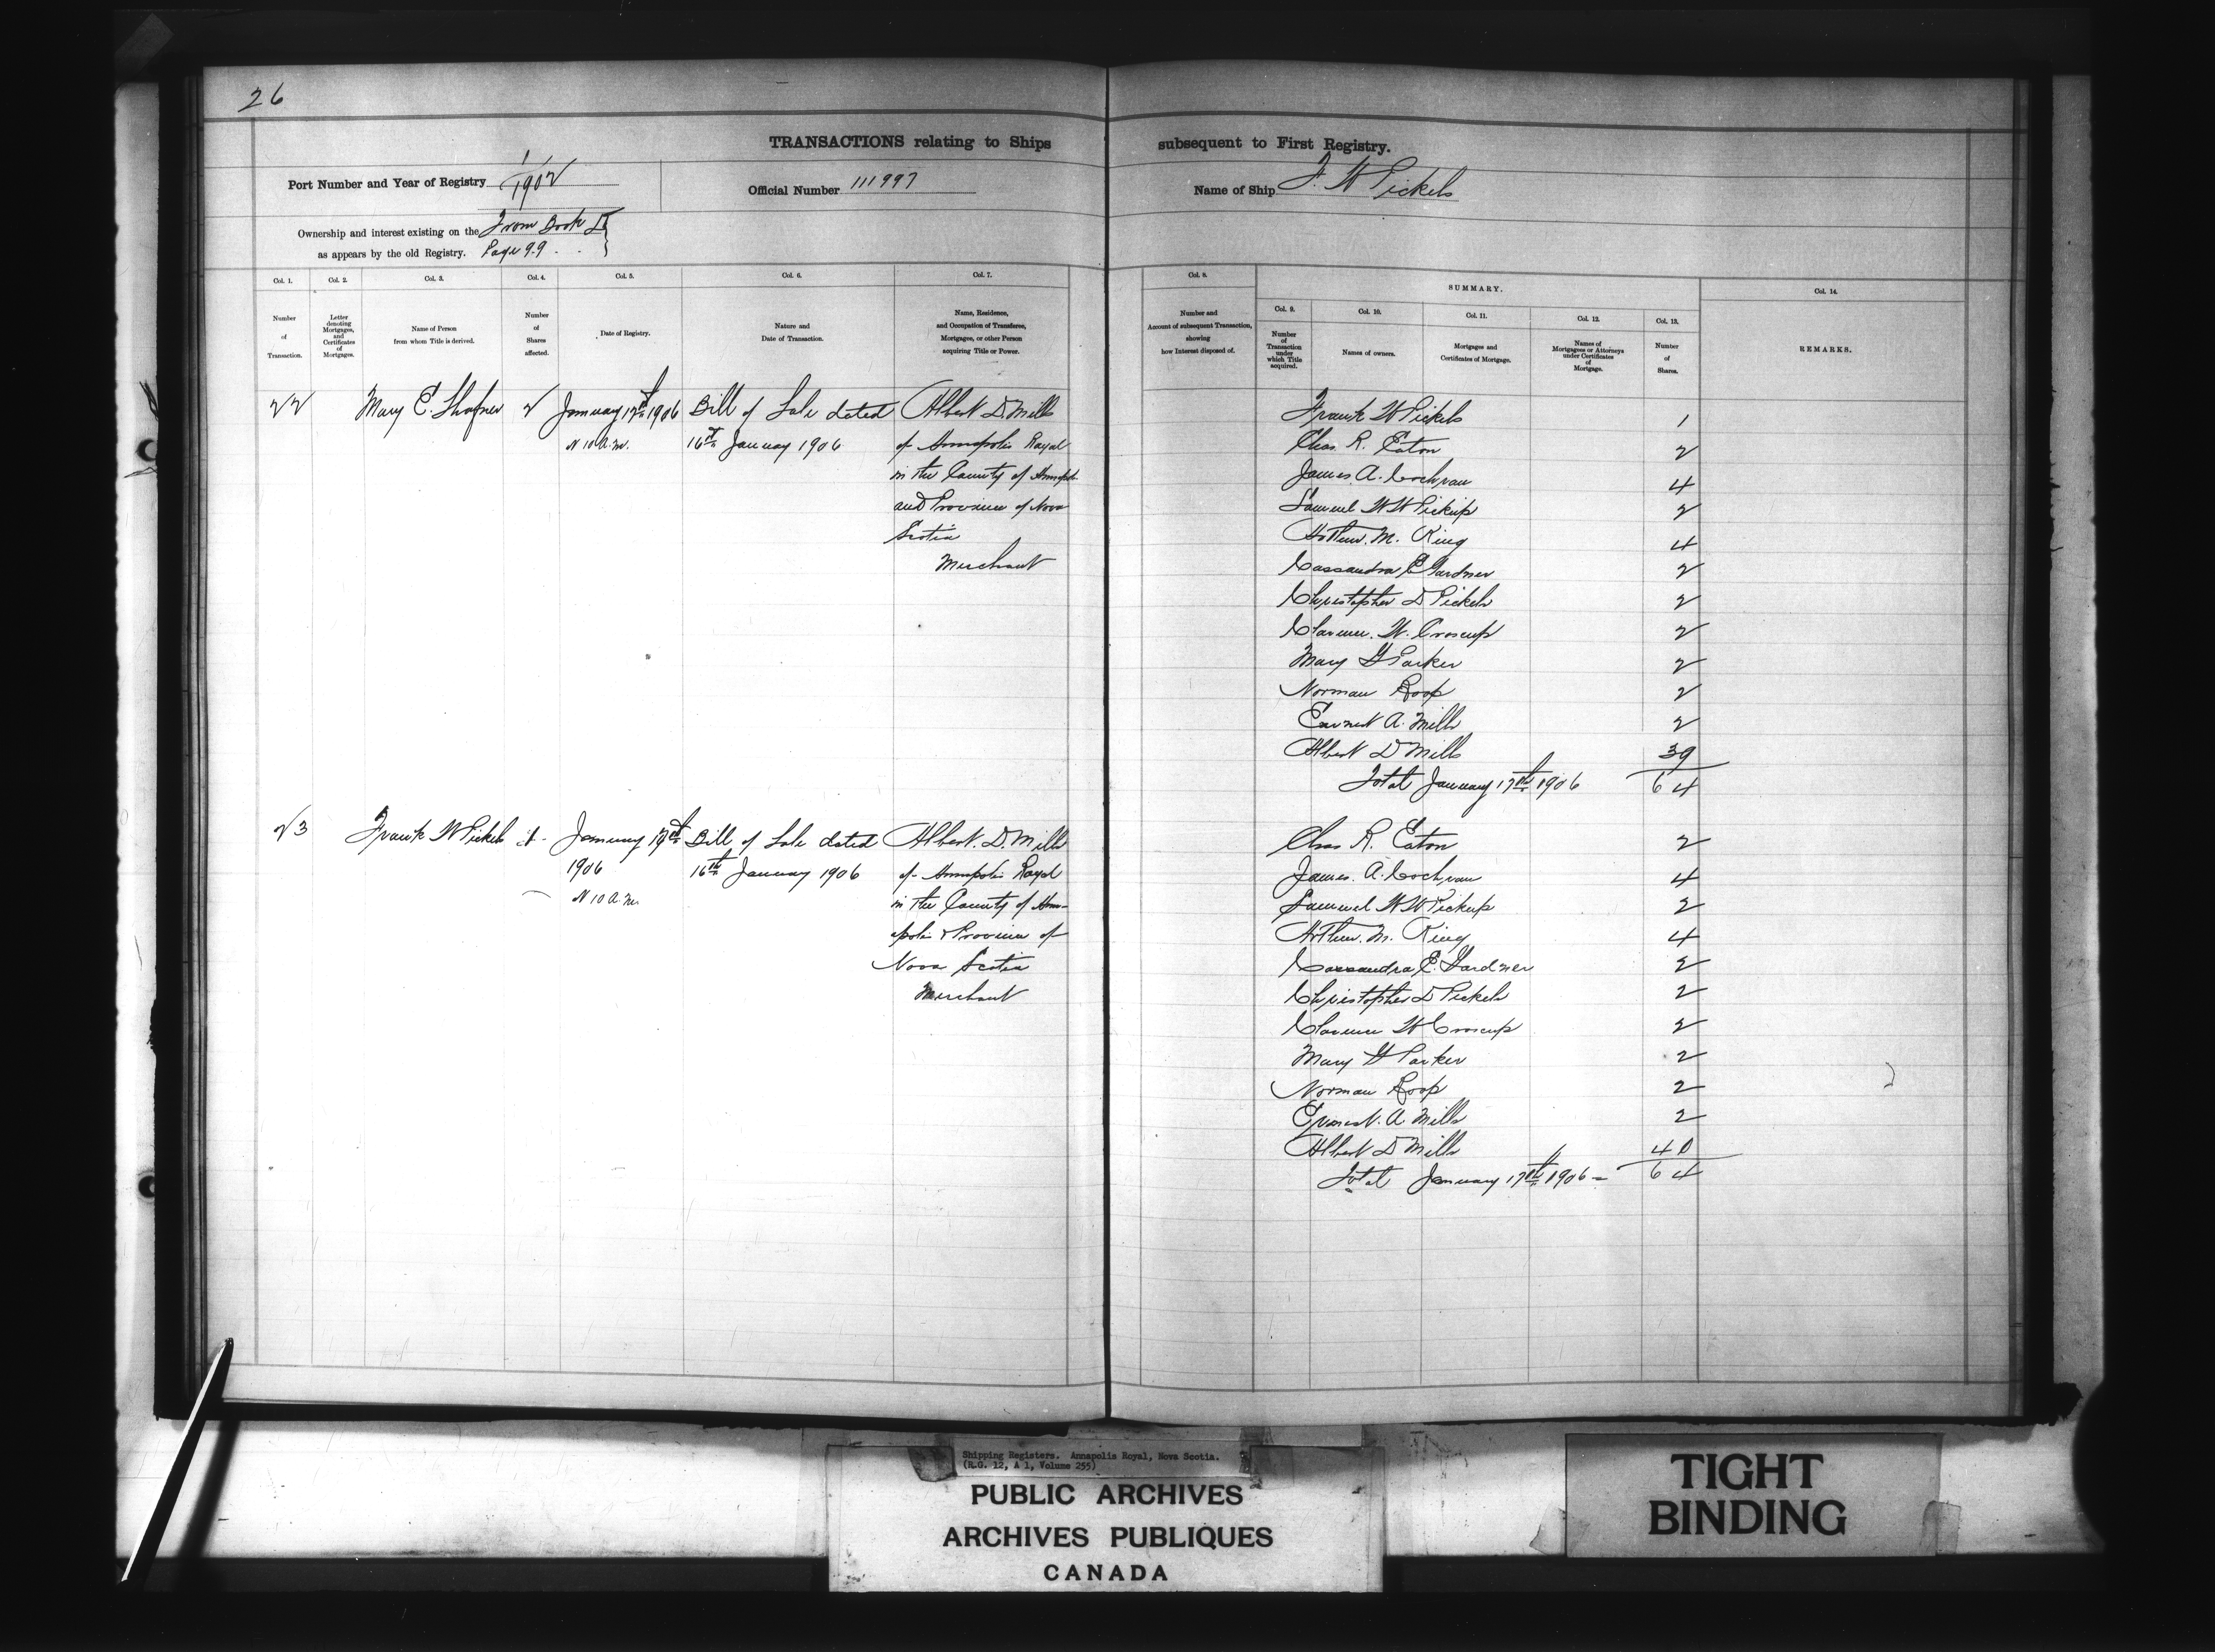 26
TRANSACTIONS relating to Ships subsequent to First Registry.
Port Number and Year of Registry 1/1902 Official Number 111997 Name of Ship F. W Pickels
Ownership and interest existing on the From Book D
as appears by the old Registry. Page 99
Col. 1. Col. 2. Col. 3. Col. 4. Col. 5. Col. 6. Col. 7. Col. 8. SUMMARY. Col. 14.
Col. 9. Col. 10. Col. 11. Col. 12. Col. 13.
Number of Transaction.
Letter denoting Mortgages, and Certificates of Mortgages.
Name of Person from whom Title is derived.
Number of Shares affected.
Date of Registry.
Nature and Date of Transaction.
Name, Residence, and Occupation of Transferee, Mortgagee, or other Person acquiring Title or Power.
Number and Account of subsequent Transaction, showing how Interest disposed of.
Number of Transaction under which Title acquired.
Names of owners.
Mortgages and Certificates of Mortgage.
Names of Mortgagees or Attorneys under Certificates of Mortgage.
Number of Shares.
REMARKS.
22 Mary E. Shafner 2 January 17th 1906 Bill of Sale dated Albert D. Mills
at 10 A.M. 16th January 1906 of Annapolis Royal
in the County of Annapolis
and Province of Nova
Scotia
Merchant
Frank W Pickels 1
Chas. R. Eaton 2
James A. Cochran 4
Samuel W W Pickup 2
Arthur. M. King 4
Cassandra E Gardner 2
Christopher D Pickels 2
Clarence. W. Croscup 2
Mary G Parker 2
Norman Roop 2
Earnest A. Mills 2
Albert D Mills 39
Total January 17th 1906 64
23 Frank W Pickels 1 January 17th Bill of Sale dated Albert. D. Mills
1906 16th January 1906 of Annapolis Royal
at 10 A.M. in the County of Anna-
polis & Province of
Nova Scotia
Merchant
Chas R. Eaton 2
James. A. Cochran 4
Samuel W W Pickup 2
Arthur. M. King 4
Cassandra E. Gardner 2
Christopher D Pickels 2
Clarence W Croscup 2
Mary G Parker 2
Norman Roop 2
Ernest. A Mills 2
Albert D Mills 40
Total January 17th 1906 - 64
Shipping Registers. Annapolis Royal, Nova Scotia.
(R.G. 12, A 1, Volume 255)
PUBLIC ARCHIVES
ARCHIVES PUBLIQUES
CANADA
TIGHT
BINDING